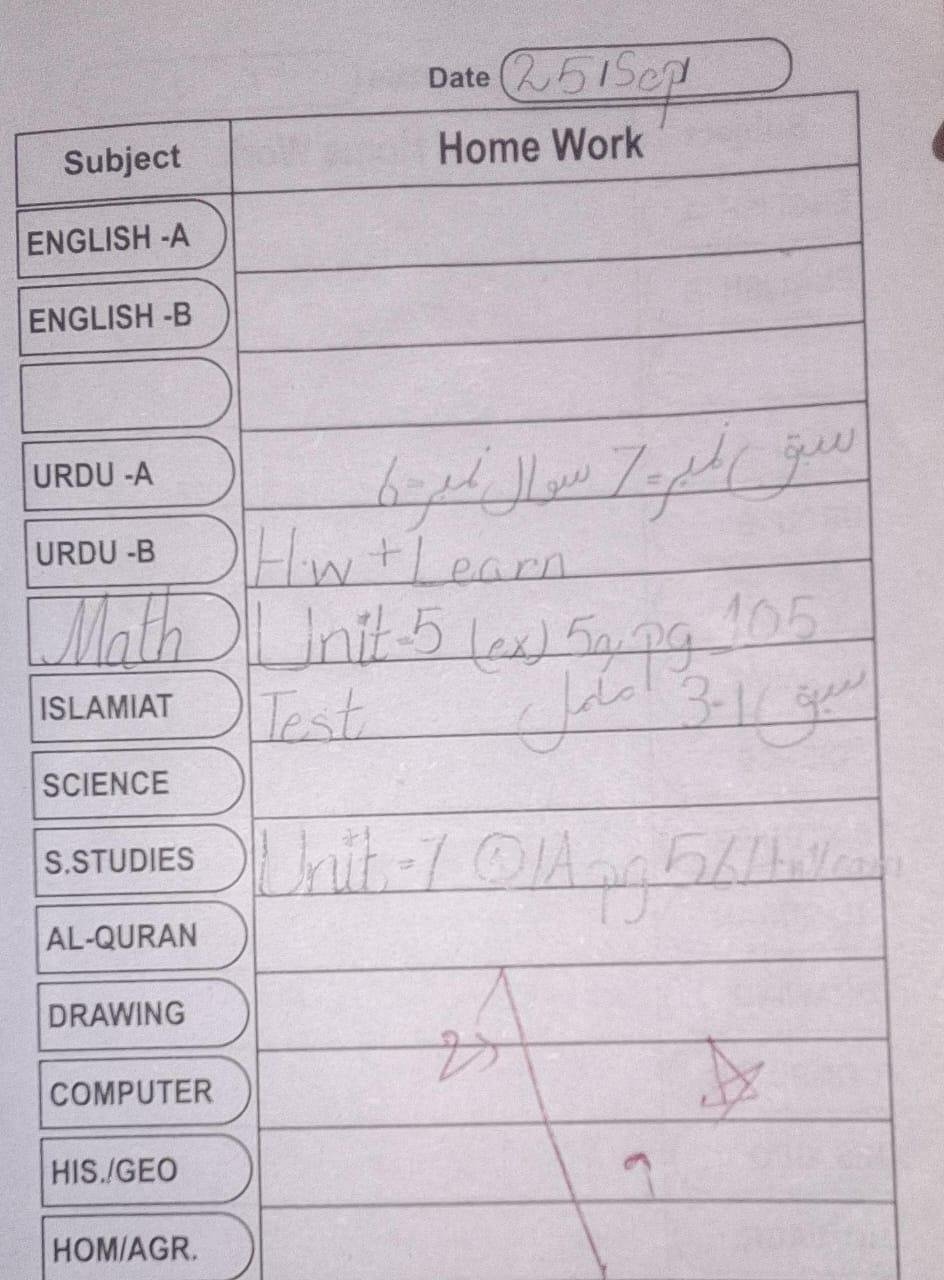 Date 25/Sep
Subject Home Work
ENGLISH -A
ENGLISH -B
URDU -A سبق نمبر=7 سوال نمبر=6
URDU -B H.w + Learn
Math Unit-5 (ex) 5a, pg 105
ISLAMIAT Test سبق 1-3
SCIENCE
S.STUDIES Unit=7 1A pg 56
AL-QURAN
DRAWING
COMPUTER
HIS./GEO
HOM/AGR.